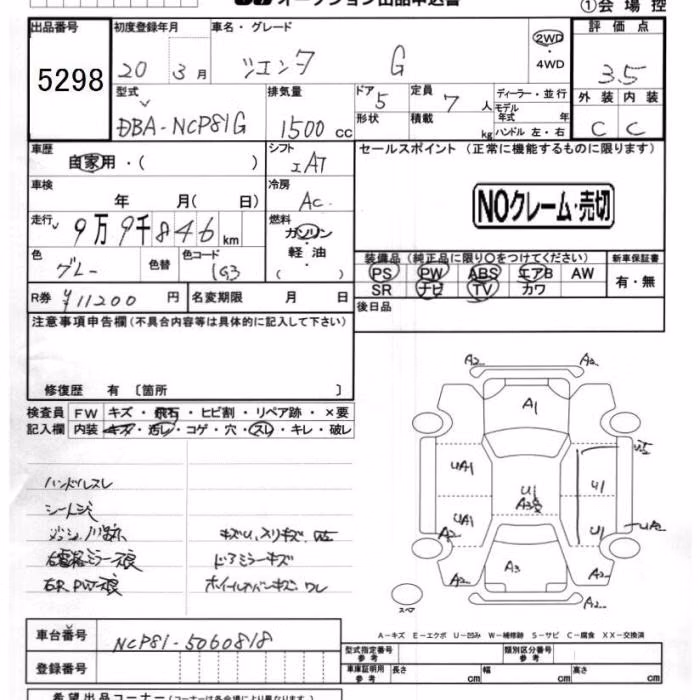 オークション出品申込書
①会場控
出品番号
5298
初度登録年月
20 3月
車名・グレード
シエンタ G
2WD
・4WD
評価点
3.5
型式
DBA-NCP81G
排気量
1500 cc
ドア 5
定員 7 人
ディーラー・並行
モデル年式 年
形状
積載 kg
ハンドル 左・右
外装 内装
C C
車歴
自家用・( )
シフト
IAT
セールスポイント (正常に機能するものに限ります)
NOクレーム・売切
車検
年 月( 日)
冷房
AC
走行
9万9千846km
燃料
ガソリン
軽油
( )
色
グレー
色替
色コード
1G3
装備品 (純正品に限り〇をつけてください)
PS PW ABS エアB AW
SR ナビ TV カワ
新車保証書
有・無
R券 ¥11200 円
名変期限 月 日
後日品
注意事項申告欄(不具合内容等は具体的に記入して下さい)
修復歴 有 〔箇所 〕
検査員
記入欄
FW キズ・飛石・ヒビ割・リペア跡・×要
内装 キズ・汚レ・コゲ・穴・スレ・キレ・破レ
ハンドルスレ
ドアミラーキズ
A2 A2
A1
UA1 U1
UA1 U1
U1
A2 A2
A3
A2 A2
スペア
A-キズ E-エクボ U-凹み W-補修跡 S-サビ C-腐食 XX-交換済
車台番号
NCP81-5060818
登録番号
型式指定番号 参考
類別区分番号 参考
車庫証明用 参考
長さ cm 幅 cm 高さ cm
希望出品コーナー(コーナーは各会場により異なります)